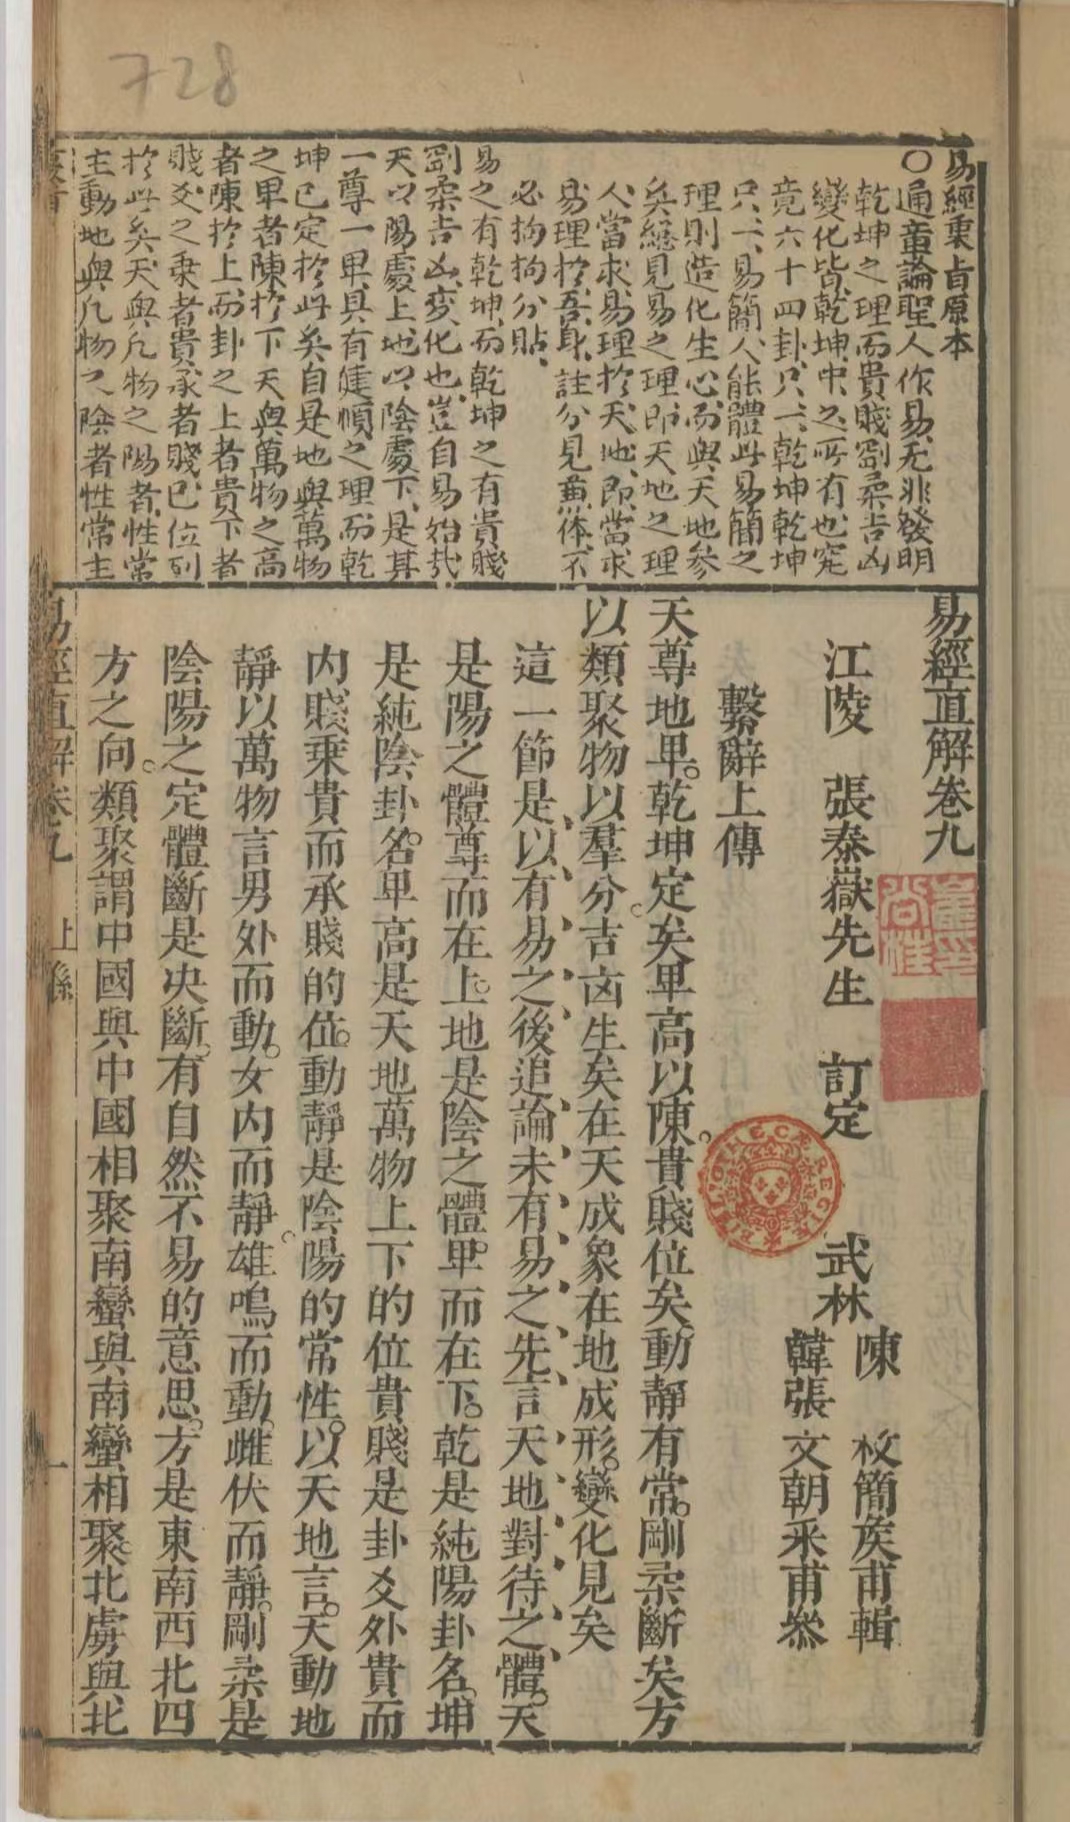 728
易經衷旨原本
○通章論聖人作易无非發明
乾坤之理而貴賤剛柔吉凶
變化皆乾坤中之所有也究
竟六十四卦只一乾坤乾坤
只一易簡人能體此易簡之
理則造化生心而與天地參
矣總見易之理即天地之理
人當求易理於天地即當求
易理於吾身註分見蒉体不
必拘拘分貼
易之有乾坤而乾坤之有貴賤
剛柔吉凶変化也豈自易始哉
天以陽處上地以陰處下是其
一尊一卑具有健順之理而乾
坤已定於此矣自是地與萬物
之卑者陳於下天與萬物之高
者陳於上而卦之上者貴下者
賤爻之乘者貴承者賤已位列
於此矣天與凡物之陽者性常
主動地與凡物之陰者性常主
易經直解卷九
江陵 張泰嶽先生 訂定 武林
陳 枚簡矦甫輯
韓張 文朝采甫叅
繫辭上傳
天尊地卑。乾坤定矣卑高以陳。貴賤位矣動靜有常。剛柔斷矣方
以類聚物以羣分。吉凶生矣在天成象在地成形。變化見矣
這一節是以有易之後追論未有易之先言天地對待之體。天
是陽之體尊而在上。地是陰之體。卑而在下。乾是純陽卦名。坤
是純陰卦名。卑高是天地萬物上下的位貴賤是卦爻外貴而
内賤乗貴而承賤的位。動靜是陰陽的常性。以天地言。天動地
靜以萬物言男外而動。女内而靜。雄鳴而動。雌伏而靜。剛柔是
陰陽之定體斷是决斷。有自然不易的意思。方是東南西北四
方之向。類聚謂中國與中國相聚南蠻與南蠻相聚。北虜與北
易經直解卷九 上繇 一
BIBLIOTHECÆ REGIÆ